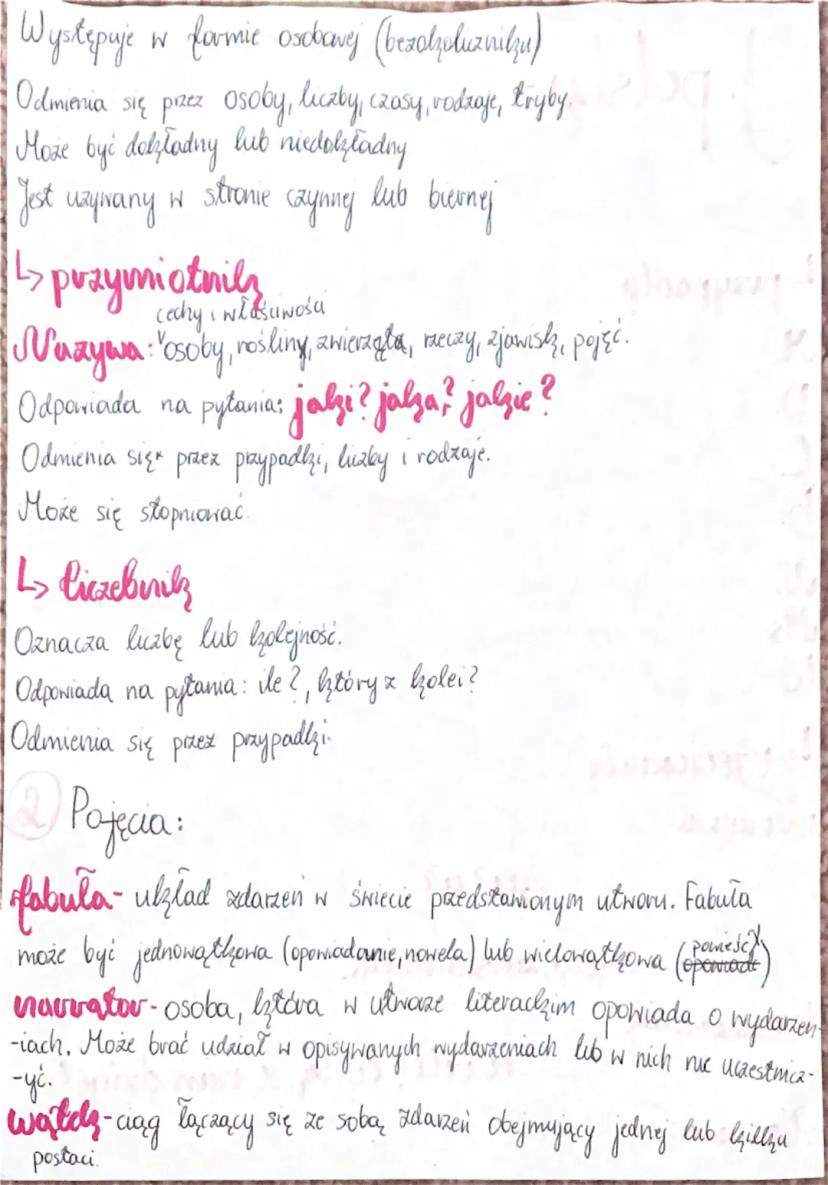 Występuje w formie osobowej (bezokoliczniku)
Odmienia się przez osoby, liczby, czasy, rodzaje, tryby.
Może być dokładny lub niedokładny
Jest używany w stronie czynnej lub biernej
↳ przymiotnik
cechy i właściwości
Nazywa: osoby, rośliny, zwierzęta, rzeczy, zjawisk, pojęć.
Odpowiada na pytania: jaki? jaka? jakie?
Odmienia się przez przypadki, liczby i rodzaje.
Może się stopniować.
↳ liczebnik
Oznacza liczbę lub kolejność.
Odpowiada na pytania: ile?, który z kolei?
Odmienia się przez przypadki.
2 Pojęcia:
fabuła - układ zdarzeń w świecie przedstawionym utworu. Fabuła
może być jednowątkowa (opowiadanie, nowela) lub wielowątkowa (opowiadt powieść)
narrator - osoba, która w utworze literackim opowiada o wydarzen-
-iach. Może brać udział w opisywanych wydarzeniach lub w nich nie uczestnicz-
-yć.
wątek - ciąg łączący się ze sobą zdarzeń obejmujący jednej lub kilku
postaci.